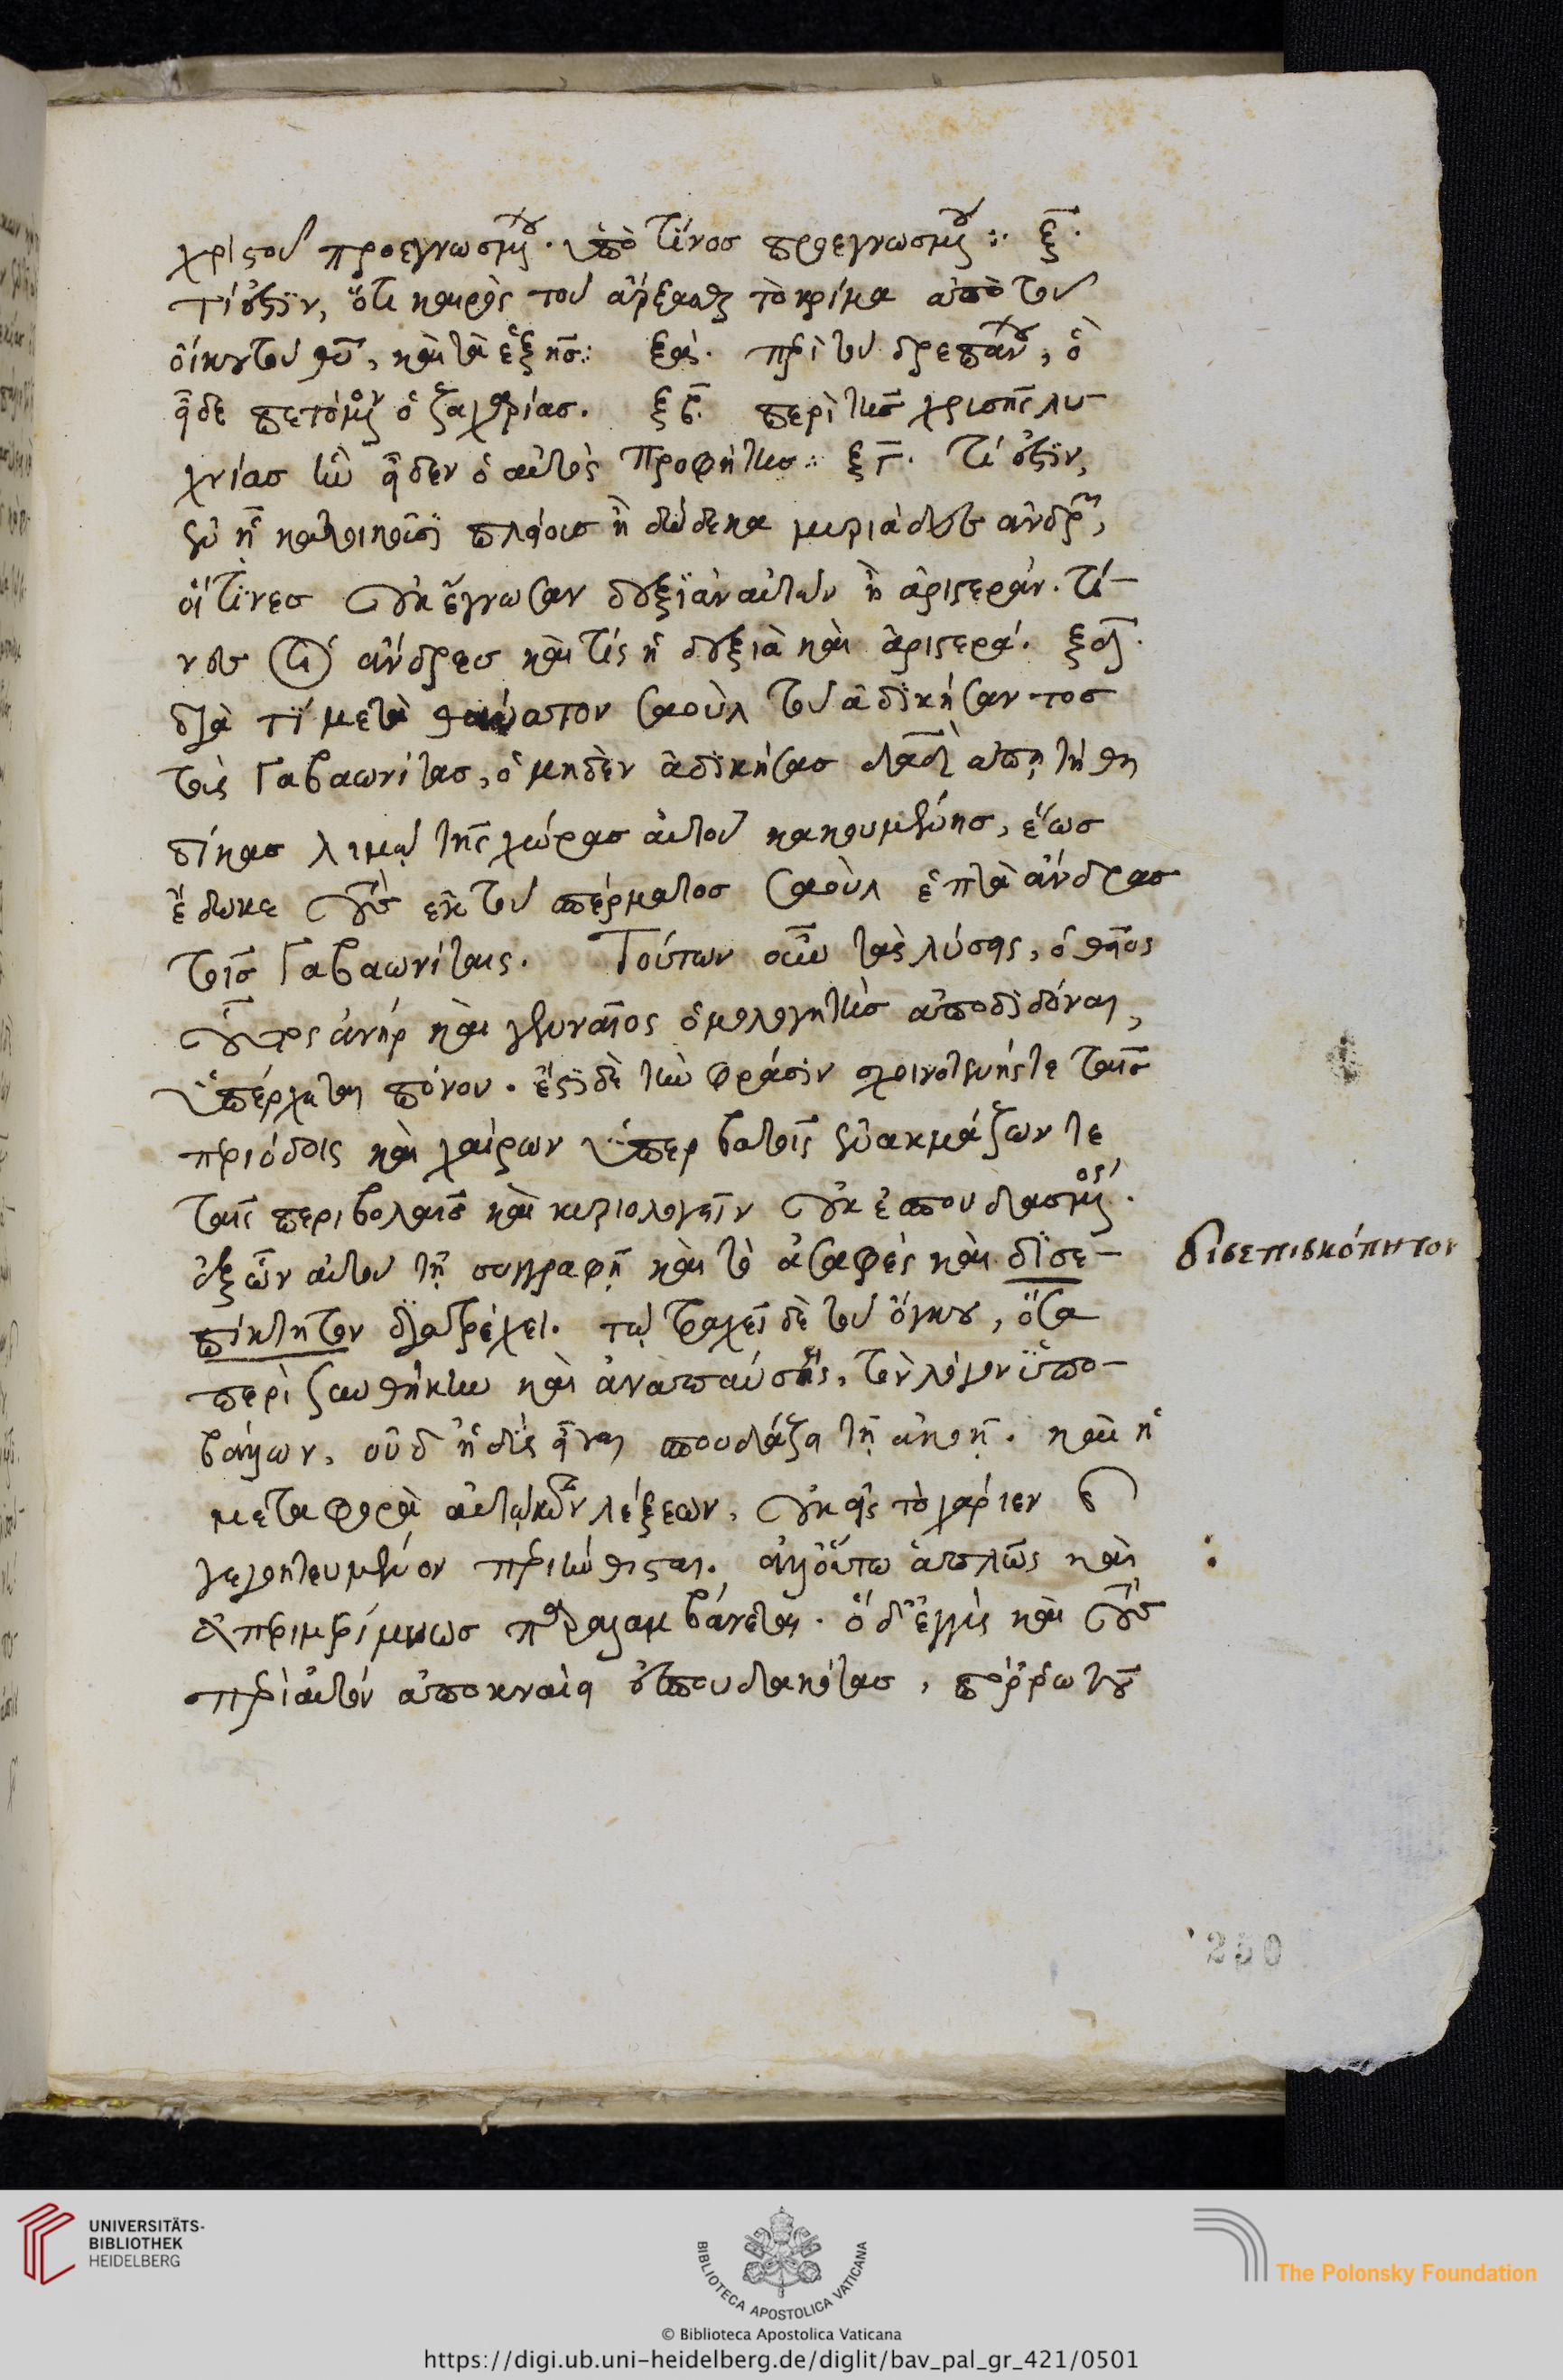 χριστοῦ προεγνωσμένου. ὑπὸ τίνος προεγνωσμένου: ξ.
τί ἐστιν, ὅτι καιρὸς τοῦ ἄρξασθαι τὸ κρίμα ἀπὸ τοῦ
οἴκου τοῦ θυ, καὶ τὰ ἑξῆς: ξα. περὶ τοῦ δρεπάνου, ὃ
εἶδε πετόμενον ὁ ζαχαρίας. ξβ. περὶ τῆς χρυσῆς λυ-
χνίας ἣν εἶδεν ὁ αὐτὸς προφήτης: ξγ. τί ἐστιν,
ἐν ᾗ κατοικοῦσι πλείους ἢ δώδεκα μυριάδες ἀνδρῶν,
οἵτινες οὐκ ἔγνωσαν δεξιὰν αὐτῶν ἢ ἀριστεράν. τί-
νες οἱ ἄνδρες καὶ τίς ἡ δεξιὰ καὶ ἀριστερά. ξδ.
διὰ τί μετὰ θάνατον σαοὺλ τοῦ ἀδικήσαντος
τοὺς Γαβαωνίτας, ὁ μηδὲν ἀδικήσας δαδ ἀπῃτήθη
δίκας λιμῷ τῆς χώρας αὐτοῦ κακουμένης, ἕως
ἔδωκε τοὺς ἐκ τοῦ σπέρματος σαοὺλ ἑπτὰ ἄνδρας
τοῖς Γαβαωνίταις. Τούτων οὖν τὰς λύσεις, ὁ θεῖος
οὗτος ἀνὴρ καὶ γενναῖος ὁμολογητὴς ἀποδιδόναι,
ὑπέρχεται πόνον. ἔστι δὲ τὴν φράσιν σχοινοτενής τε ταῖς
περιόδοις καὶ χαίρων ὑπερβατοῖς ἐνακμάζων τε
ταῖς περιβολαῖς καὶ κυριολογεῖν οὐκ ἐσπουδασμένος.
ἐξ ὧν αὐτοῦ τῇ συγγραφῇ καὶ τὸ ἀσαφὲς καὶ δισε-
πίκτητον διατρέχει. τῷ τραχεῖ δὲ τοῦ ὄγκου, ὅσα
περὶ συνθήκην καὶ ἀναπαύσεις, τὸν λόγον ὑπο-
βάλλων, οὐδ' ἡδὺς εἶναι σπουδάζει τῇ ἀκοῇ. καὶ ἡ
μεταφορὰ αὐτῷ τῶν λέξεων, οὐκ εἰς τὸ χαρίεν καὶ
γεγοητευμένον περιήνθισται. ἀλλ' οὕτω ἁπλῶς καὶ
ἀπεριμερίμνως παραλαμβάνεται. ὁ δ' ἐγγὺς καὶ τοὺς
περὶ αὐτὸν ἀποκναίει ἐσπουδακότας, πόρρω τοῦ
δισεπισκόπητον
250
UNIVERSITÄTS-
BIBLIOTHEK
HEIDELBERG
BIBLIOTECA APOSTOLICA VATICANA
The Polonsky Foundation
© Biblioteca Apostolica Vaticana
https://digi.ub.uni-heidelberg.de/diglit/bav_pal_gr_421/0501